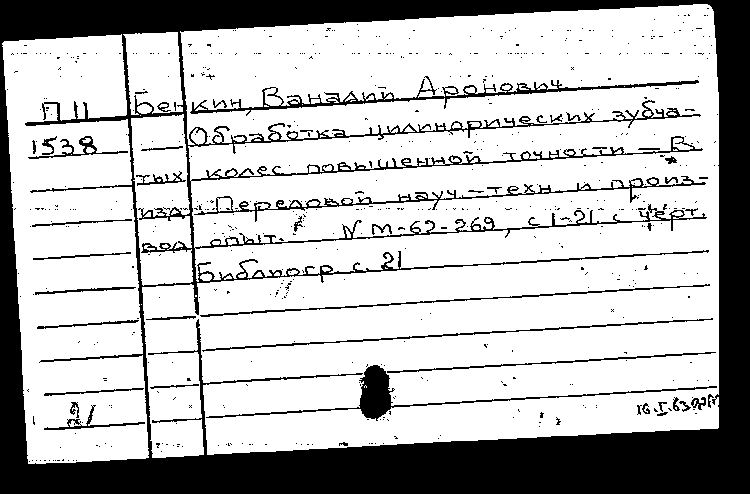 П11 Бенкин, Виталий Аронович.
1538 Обработка цилиндрических зубча-
тых колес повышенной точности = В
изд.: Передовой науч.-техн. и произ-
вод. опыт. N М-62-269, с 1-21 с черт.
Библиогр. с. 21
21